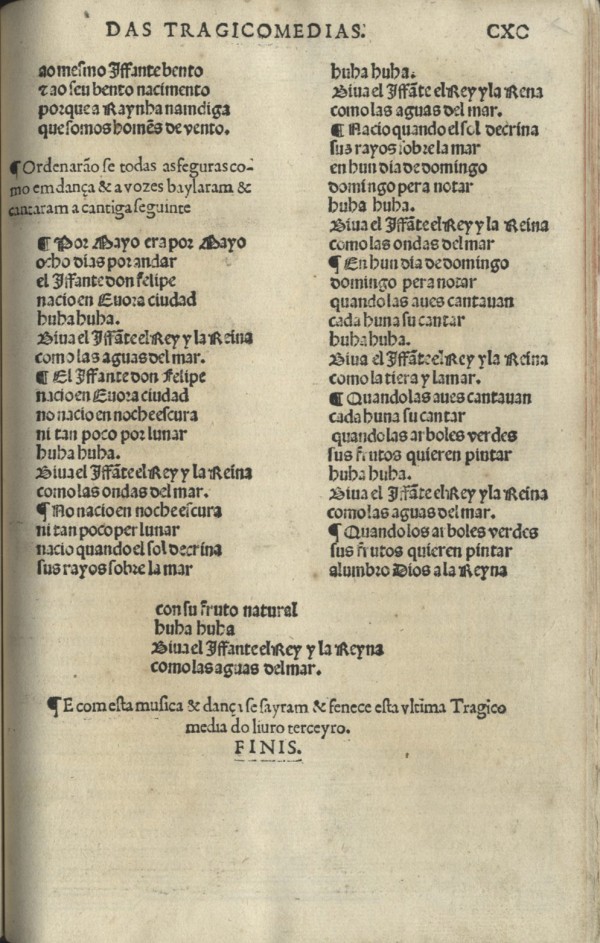 DAS TRAGICOMEDIAS. CXC
ao mesmo Iffante bento
& ao seu bento nacimento
porque a Raynha nam diga
que somos homẽs de vento.
¶ Ordenarão se todas as feguras co-
mo em dança & a vozes baylaram &
cantaram a cantiga seguinte
¶ Por Mayo era por Mayo
ocho dias por andar
el Iffante don felipe
nacio en Euora ciudad
huha huha.
Biua el Iffãte el Rey y la Reina
como las aguas del mar.
¶ El Iffante don felipe
nacio en Euora ciudad
no nacio en noche escura
ni tan poco por lunar
huha huha.
Biua el Iffãte el Rey y la Reina
como las ondas del mar.
¶ No nacio en noche escura
ni tan poco per lunar
nacio quando el sol decrina
sus rayos sobre la mar
huha huha.
Biua el Iffãte el Rey y la Rena
como las aguas del mar.
¶ Nacio quando el sol decrina
sus rayos sobre la mar
en hun dia de domingo
domingo pera notar
huha huha.
Biua el Iffãte el Rey y la Reina
como las ondas del mar
¶ En hun dia de domingo
domingo pera notar
quando las aues cantauan
cada huna su cantar
huha huha.
Biua el Iffãte el Rey y la Reina
como la tiera y la mar.
¶ Quando las aues cantauan
cada huna su cantar
quando las arboles verdes
sus frutos quieren pintar
huha huha.
Biua el Iffãte el Rey y la Reina
como las aguas del mar.
¶ Quando los arboles verdes
sus frutos quieren pintar
alumbro Dios a la Reyna
con su fruto natural
huha huha
Biua el Iffante el Rey y la Reyna
como las aguas del mar.
¶ E com esta musica & dança se sayram & fenece esta vltima Tragico
media do liuro terceyro.
FINIS.